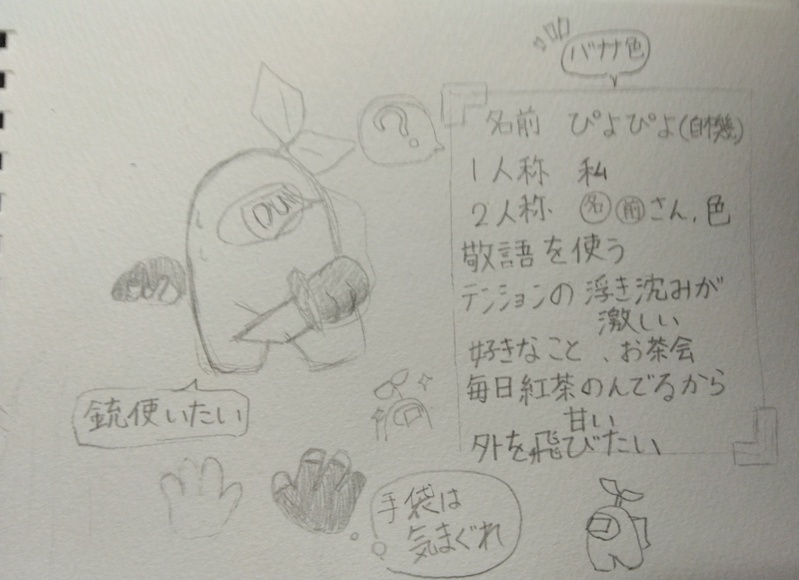 バナナ色
?
名前 ぴよぴよ(自機)
1人称 私
2人称 名前さん、色
敬語を使う
テンションの浮き沈みが
激しい
好きなこと、お茶会
毎日紅茶のんでるから
甘い
外を飛びたい
銃使いたい
手袋は
気まぐれ